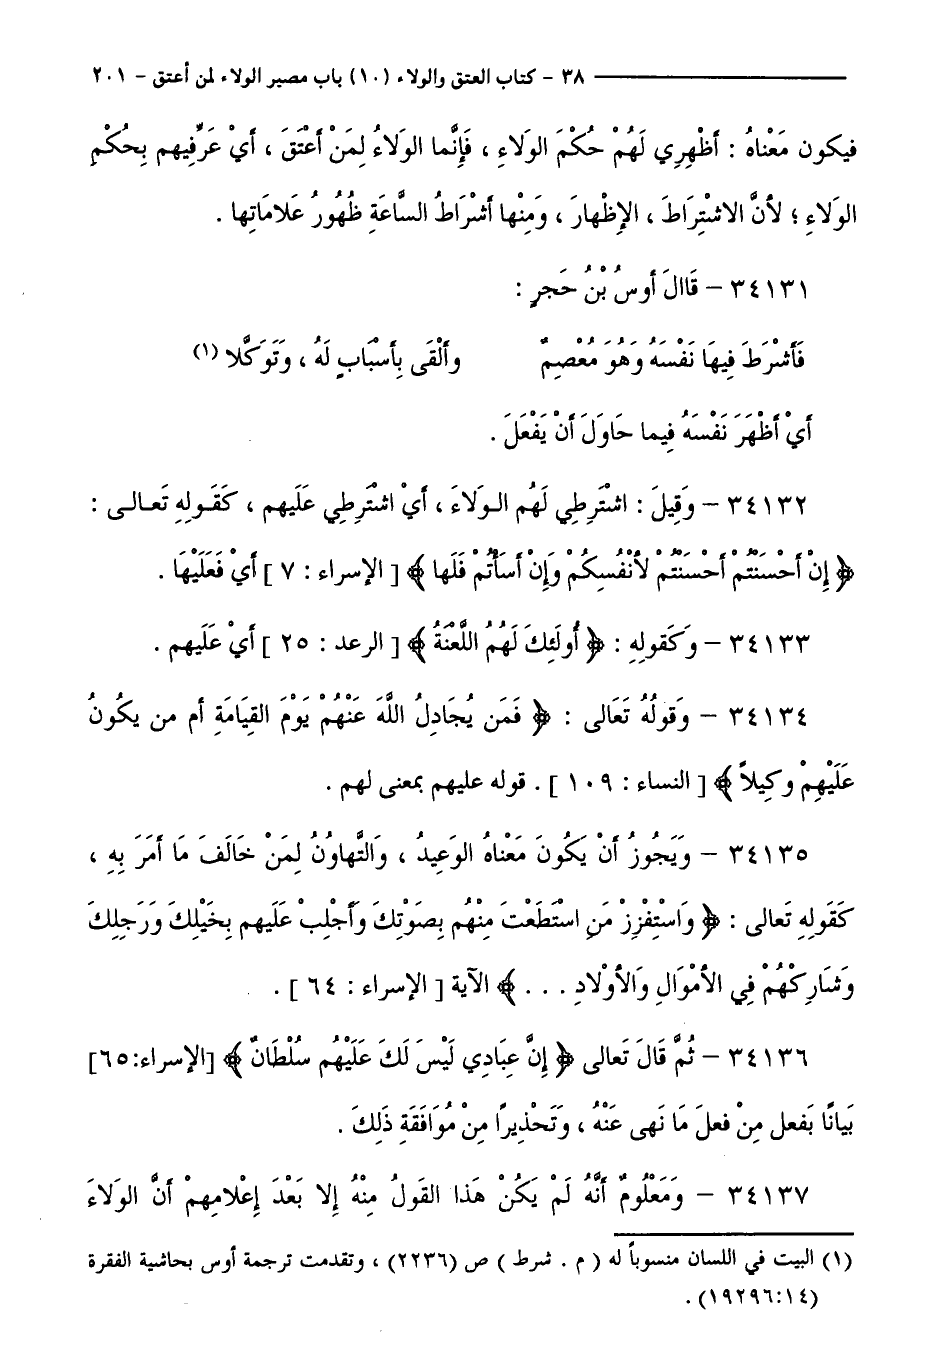 ٣٨ - كتاب العتق والولاء (١٠) باب مصير الولاء لمن أعتق - ٢٠١
فيكون مَعْناهُ : أظْهِرِي لَهُمْ حُكْمَ الوَلاءِ ، فَإِنَّما الوَلاءُ لِمَنْ أعْتَقَ ، أيْ عَرِّفِيهم بِحُكْمِ
الوَلاءِ ؛ لأنَّ الاشْتِرَاطَ ، الإِظْهارَ ، وَمِنْها أشْرَاطُ السَّاعَةِ ظُهُورُ عَلامَاتِها .
٣٤١٣١ - قَاالَ أوسُ بْنُ حَجرٍ :
فَأشْرَطَ فِيهَا نَفْسَهُ وَهُوَ مُعْصِمٌ وألْقَى بِأسْبَابٍ لَهُ ، وَتَوَكَّلا (١)
أيْ أظْهَرَ نَفْسَهُ فِيما حَاوَلَ أنْ يَفْعَلَ .
٣٤١٣٢ - وَقِيلَ : اشْتَرِطِي لَهُم الوَلاءَ ، أيْ اشْتَرِطِي عَلَيهم ، كَقَولِهِ تَعالى :
﴿ إِنْ أحْسَنْتُمْ أحْسَنْتُمْ لأنْفُسِكُمْ وَإِنْ أسَأتُمْ فَلَها ﴾ [ الإسراء : ٧ ] أيْ فَعَلَيْهَا .
٣٤١٣٣ - وَكَقولِهِ : ﴿ أُولَئِكَ لَهُمُ اللَّعْنَةُ ﴾ [ الرعد : ٢٥ ] أيْ عَلَيهم .
٣٤١٣٤ - وَقولُهُ تَعَالى : ﴿ فَمَن يُجَادِلُ اللَّهَ عَنْهُمْ يَوْمَ القِيَامَةِ أم من يكُونُ
عَلَيْهِمْ وكِيلاً ﴾ [ النساء : ١٠٩ ] . قوله عليهم بمعنى لهم .
٣٤١٣٥ - وَيَجُوزُ أنْ يَكُونَ مَعْناهُ الوَعِيدُ ، وَالتَّهاوُنُ لِمَنْ خَالَفَ مَا أمَرَ بِهِ ،
كَقَولِهِ تَعالى : ﴿ وَاسْتِفْزِزْ مَنِ اسْتَطَعْتَ مِنْهُم بِصَوْتِكَ وَأجْلِبْ عَلَيهم بِخَيْلِكَ وَرَجِلِكَ
وَشَارِكْهُمْ فِي الأمْوَالِ وَالأوْلادِ . . . ﴾ الآية [ الإسراء : ٦٤ ] .
٣٤١٣٦ - ثُمَّ قَالَ تَعالى ﴿ إِنَّ عِبَادِي لَيْسَ لَكَ عَلَيْهُم سُلْطَانٌ ﴾ [الإسراء:٦٥]
بَيانًا بَفعل مِنْ فعلَ مَا نَهى عَنْهُ ، وَتَحْذِيرًا مِنْ مُوَافَقَةِ ذَلِكَ .
٣٤١٣٧ - وَمَعْلُومٌ أنَّهُ لَمْ يَكُنْ هَذا القَولُ مِنْهُ إِلا بَعْدَ إِعْلامِهمْ أنَّ الوَلاءَ
(١) البيت في اللسان منسوباً له ( م . شرط ) ص (٢٢٣٦) ، وتقدمت ترجمة أوس بحاشية الفقرة
(١٩٢٩٦:١٤) .